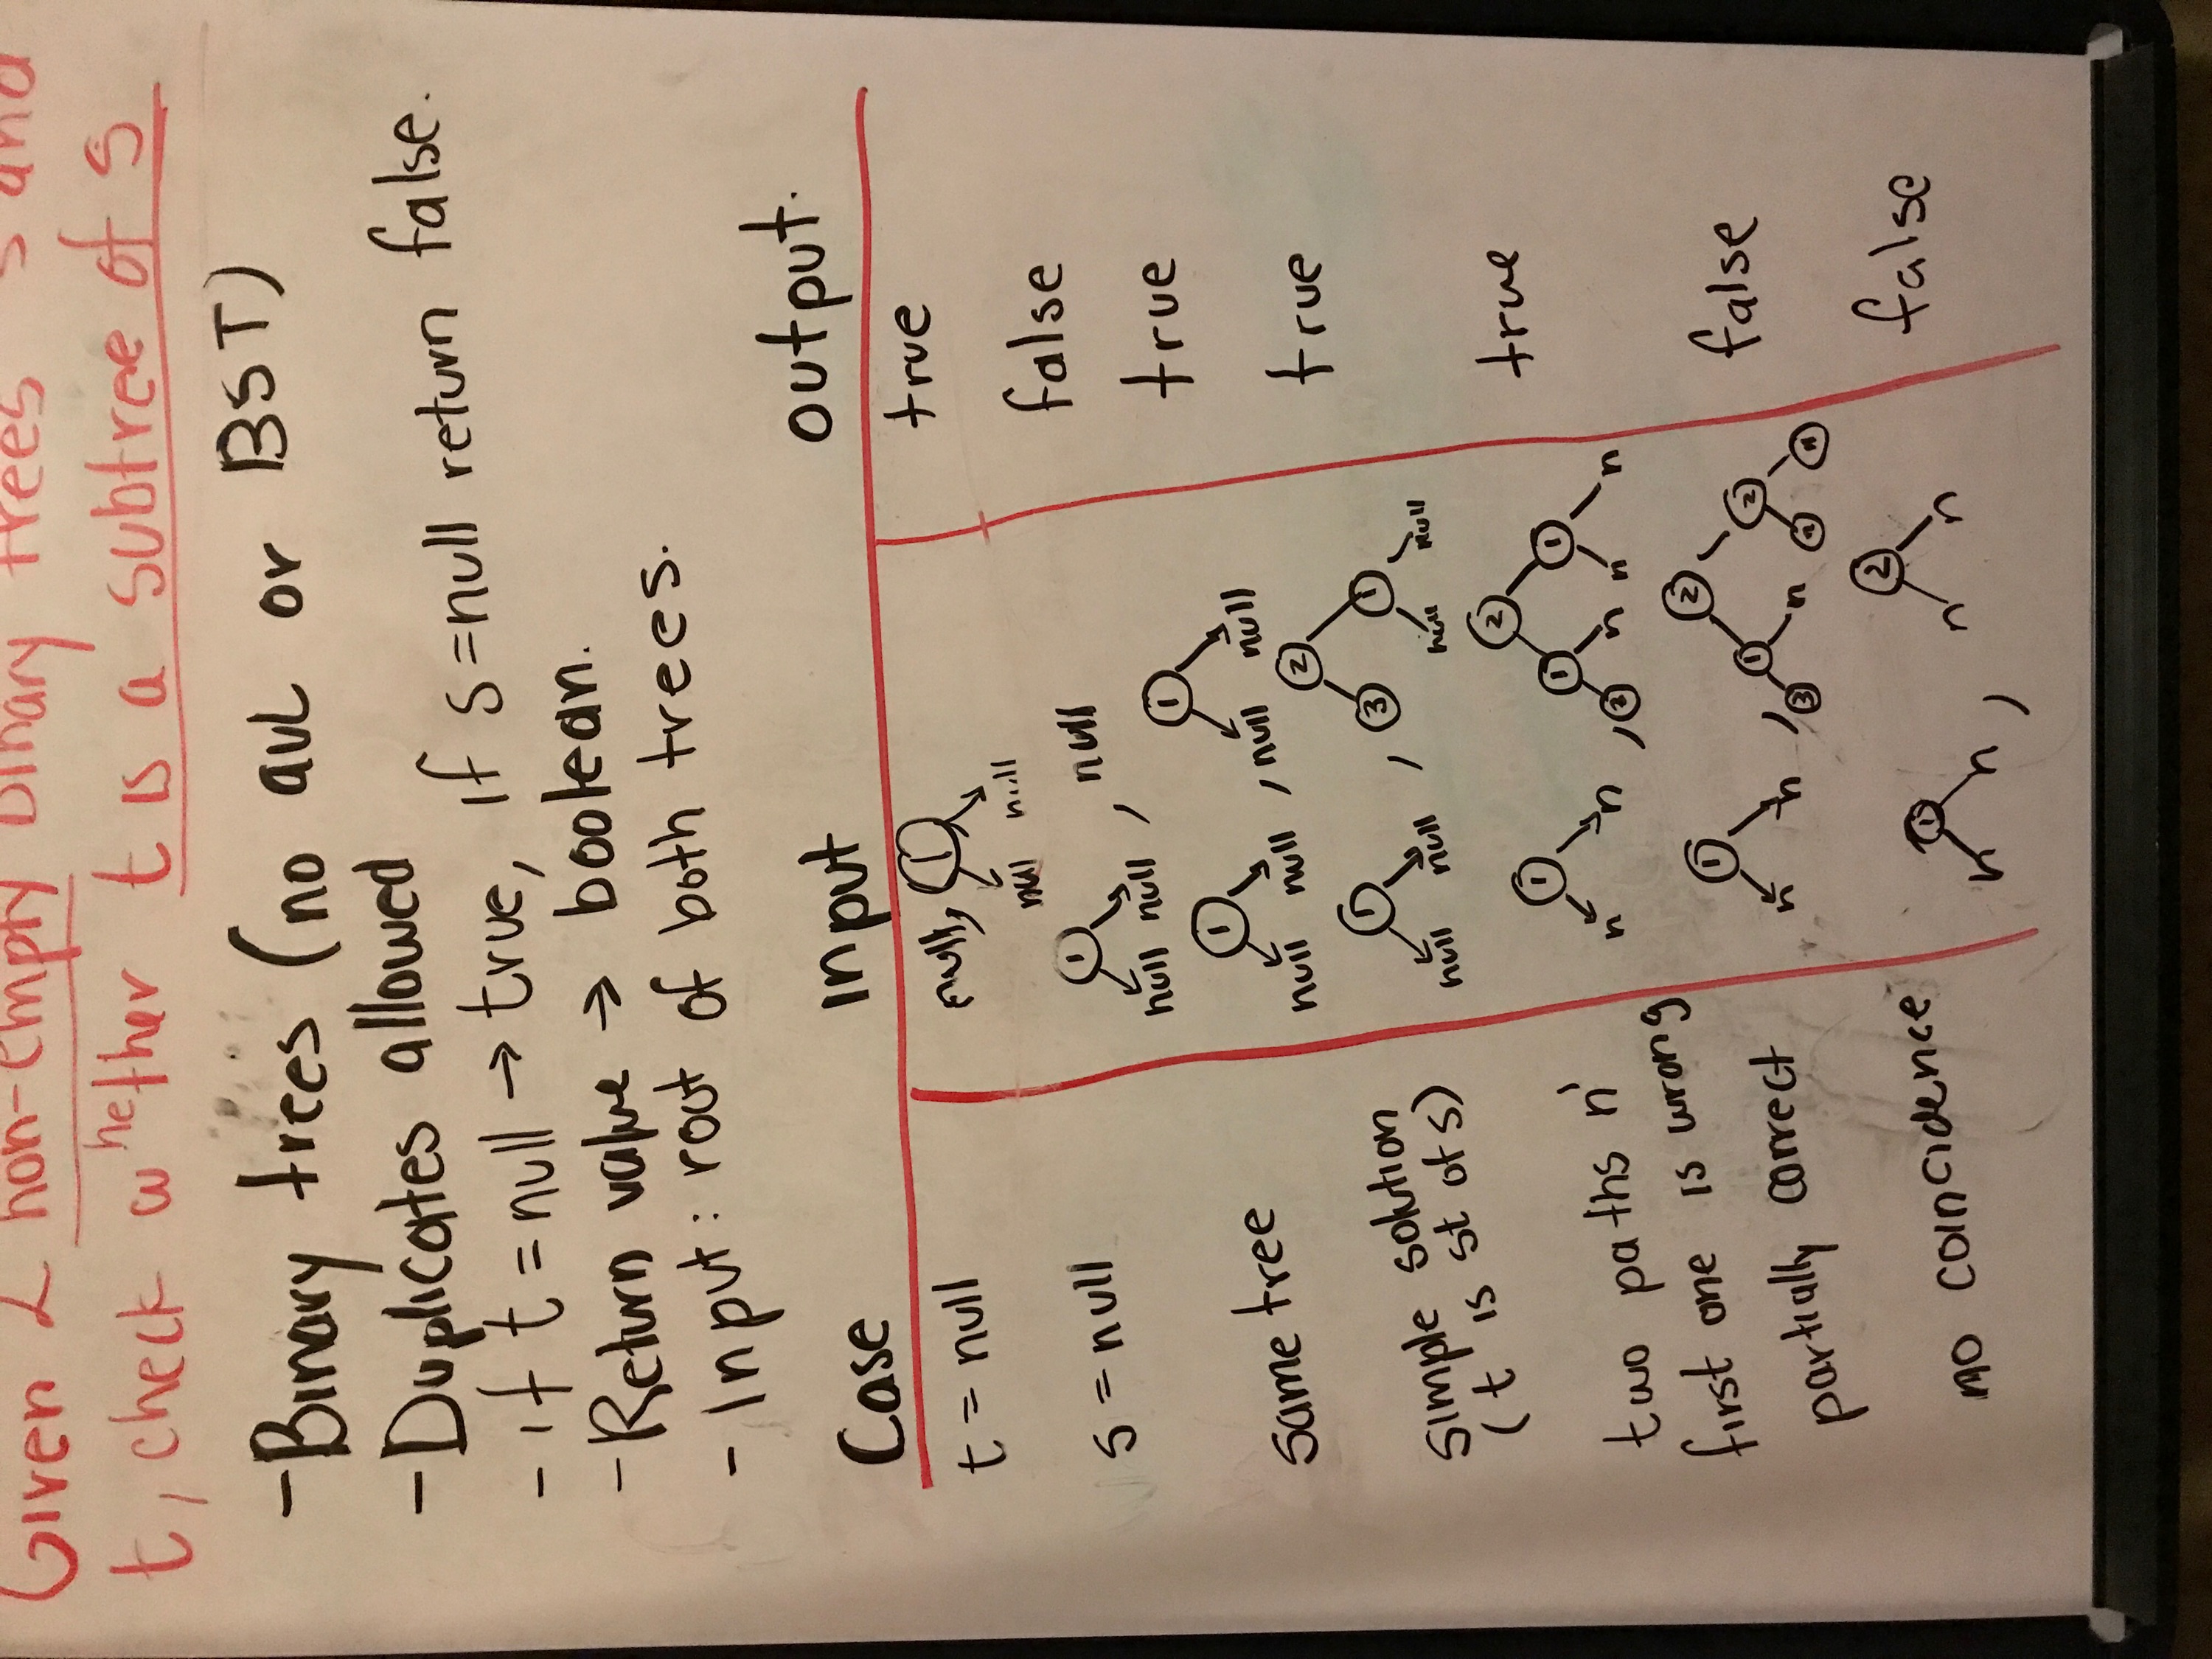 Given 2 non-empty binary trees s and
t, check whether t is a subtree of s
- Binary trees (no avL or BST)
- Duplicates allowed
- if t = null → true, if s = null return false.
- Return value → boolean.
- Input: root of both trees.
Case Input output.
t = null null, 1 true
null null
s = null 1 , null false
null null
same tree 1 , 1 true
null null null null
simple solution 1 , 2 true
(t is st of s) 3 1
null null null null
two paths n' 1 , 2 true
first one is wrong 1 1
n n n n n
partially correct 1 , 2 false
1 2
n n 3 n
no coincidence 1 , 2 false
n n n n